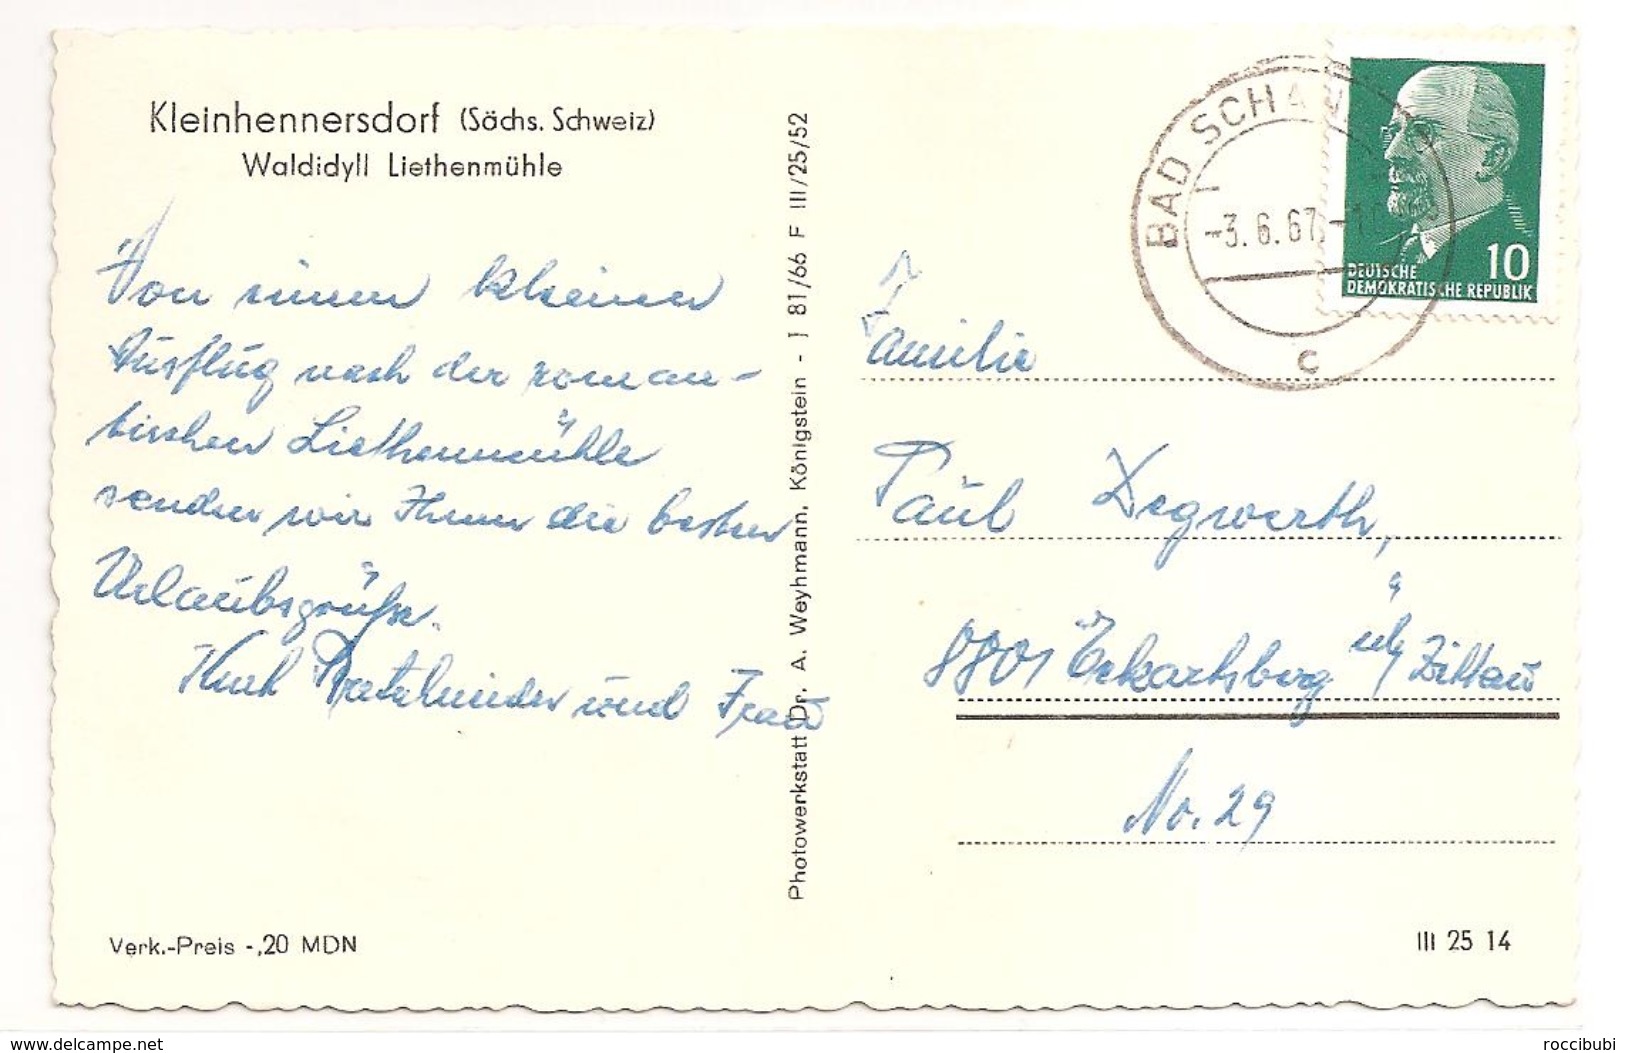 Kleinhennersdorf (Sächs. Schweiz)
Waldidyll Liethenmühle
Von einem kleinen
Ausflug nach der roman-
tischen Liethenmühle
senden wir Ihnen die besten
Urlaubsgrüße.
und Frau
Photowerkstatt Dr. A. Weyhmann, Königstein - J 81/66 F III/25/52
BAD SCHAN
-3.6.67-
c
10
DEUTSCHE
DEMOKRATISCHE REPUBLIK
Familie
Paul Degwerth,
8801 Eckartsberg üb/ Zittau
No. 29
Verk.-Preis -,20 MDN
III 25 14
www.delcampe.net
roccibubi